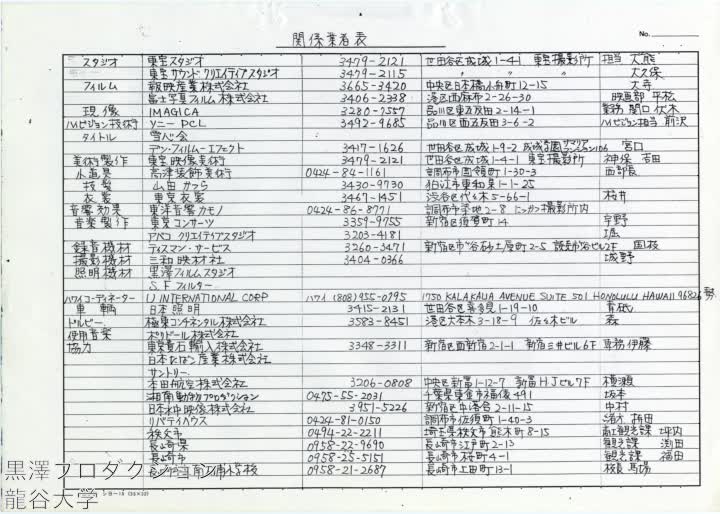 関係業者表
No.
スタジオ 東宝スタジオ 3479-2121 世田谷区成城1-41 東宝撮影所 担当 大熊
東宝サウンドクリエイティブスタジオ 3479-2115 〃 〃 大久保
フィルム 報映産業株式会社 3665-3420 中央区日本橋小舟町12-15 大寺
富士写真フィルム株式会社 3406-2338 港区西麻布2-26-30 映画部 平松
現像 IMAGICA 3280-7557 品川区東五反田2-14-1 営務 関口 伏木
ハイビジョン技術 ソニーPCL 3492-9685 品川区西五反田3-6-2 ハイビジョン担当 前沢
タイトル
デン・フィルム・エフェクト 3417-1626 世田谷区成城1-9-2 宮口
美術製作 東宝映像美術 3479-2121 世田谷区成城1-4-1 東宝撮影所 神保 吉田
小道具 高津装飾美術 0424-84-1161 調布市国領町1-30-3
技髪 山田かつら 3430-9730 狛江市東和泉1-1-25
衣裳 東京衣裳 3467-1451 渋谷区代々木5-66-1 桜井
音響効果 東洋音響カモノ 0424-86-8771 調布市染地2-8 にっかつ撮影所内
音楽製作 東京コンサーツ 3359-9755 新宿区須賀町14 宇野
アバコ クリエイティブスタジオ 3203-4181 堀
録音機材 ティスマン・サービス 3260-3471 新宿区市ヶ谷砂土原町2-5 国枝
撮影機材 三和映材社 3404-0366 城野
照明機材 黒澤フィルムスタジオ
S.F フィルター
ハワイコーディネーター U INTERNATIONAL CORP ハワイ (808)955-0295 1750 KALAKAUA AVENUE SUITE 501 HONOLULU HAWAII 96826
車輌 日本照明 3415-2131 世田谷区喜多見1-19-10
ドルビー 極東コンチネンタル株式会社 3583-8451 港区六本木3-18-9 佐々木ビル 森
使用音楽 ポリドール株式会社
協力 東京貴石輸入株式会社 3348-3311 新宿区西新宿2-1-1 新宿三井ビル6F 専務 伊藤
日本たばこ産業株式会社
サントリー
本田航空株式会社 3206-0808 中央区新富1-12-7 新富HJビル7F 横瀬
湘南動物プロダクション 0475-55-2031 千葉県東金市福俵491 坂本
日本水中映像株式会社 3951-5226 新宿区中落合2-11-15 中村
リバティハウス 0424-81-0150 調布市佐須町1-40-3
秩父市 0494-22-2211 埼玉県秩父市熊木町8-15 商工観光課 坪内
長崎県 0958-22-9690 長崎市江戸町2-13 観光課
長崎市 0958-25-5151 長崎市桜町4-1 観光課 福田
0958-21-2687 長崎市上田町13-1 校長 馬場
黒澤プロダクション
龍谷大学